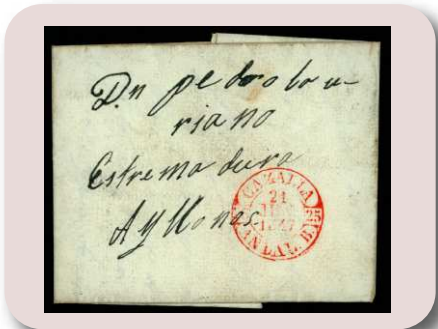 Dn pedro lou-
riano
Estremadura
Ayllones
CAZALLA
21
1847
ANDAL. B.